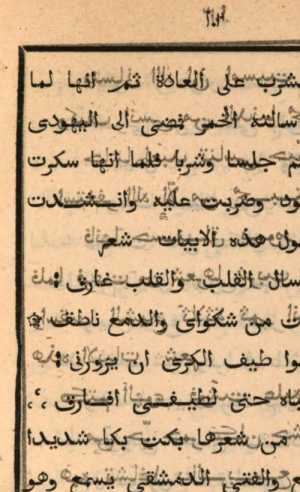 ٣٨٩
شرب على العادة ثم انها لما
سالته الخمر تمضى الى اليهودى
ثم جلسا وشربا فلما انها سكرت
عود وضربت عليه وانـشـدت
ول هذه الابيات شعر
سال القلب والقلب غارق
ت من شكواى والدمع ناطق
وا طيف الكرى ان يزورنى
اه حتى لطيفـى افـارق
من شعرها بكت بكا شديدا
والفتى الدمشقى يسمع وهو